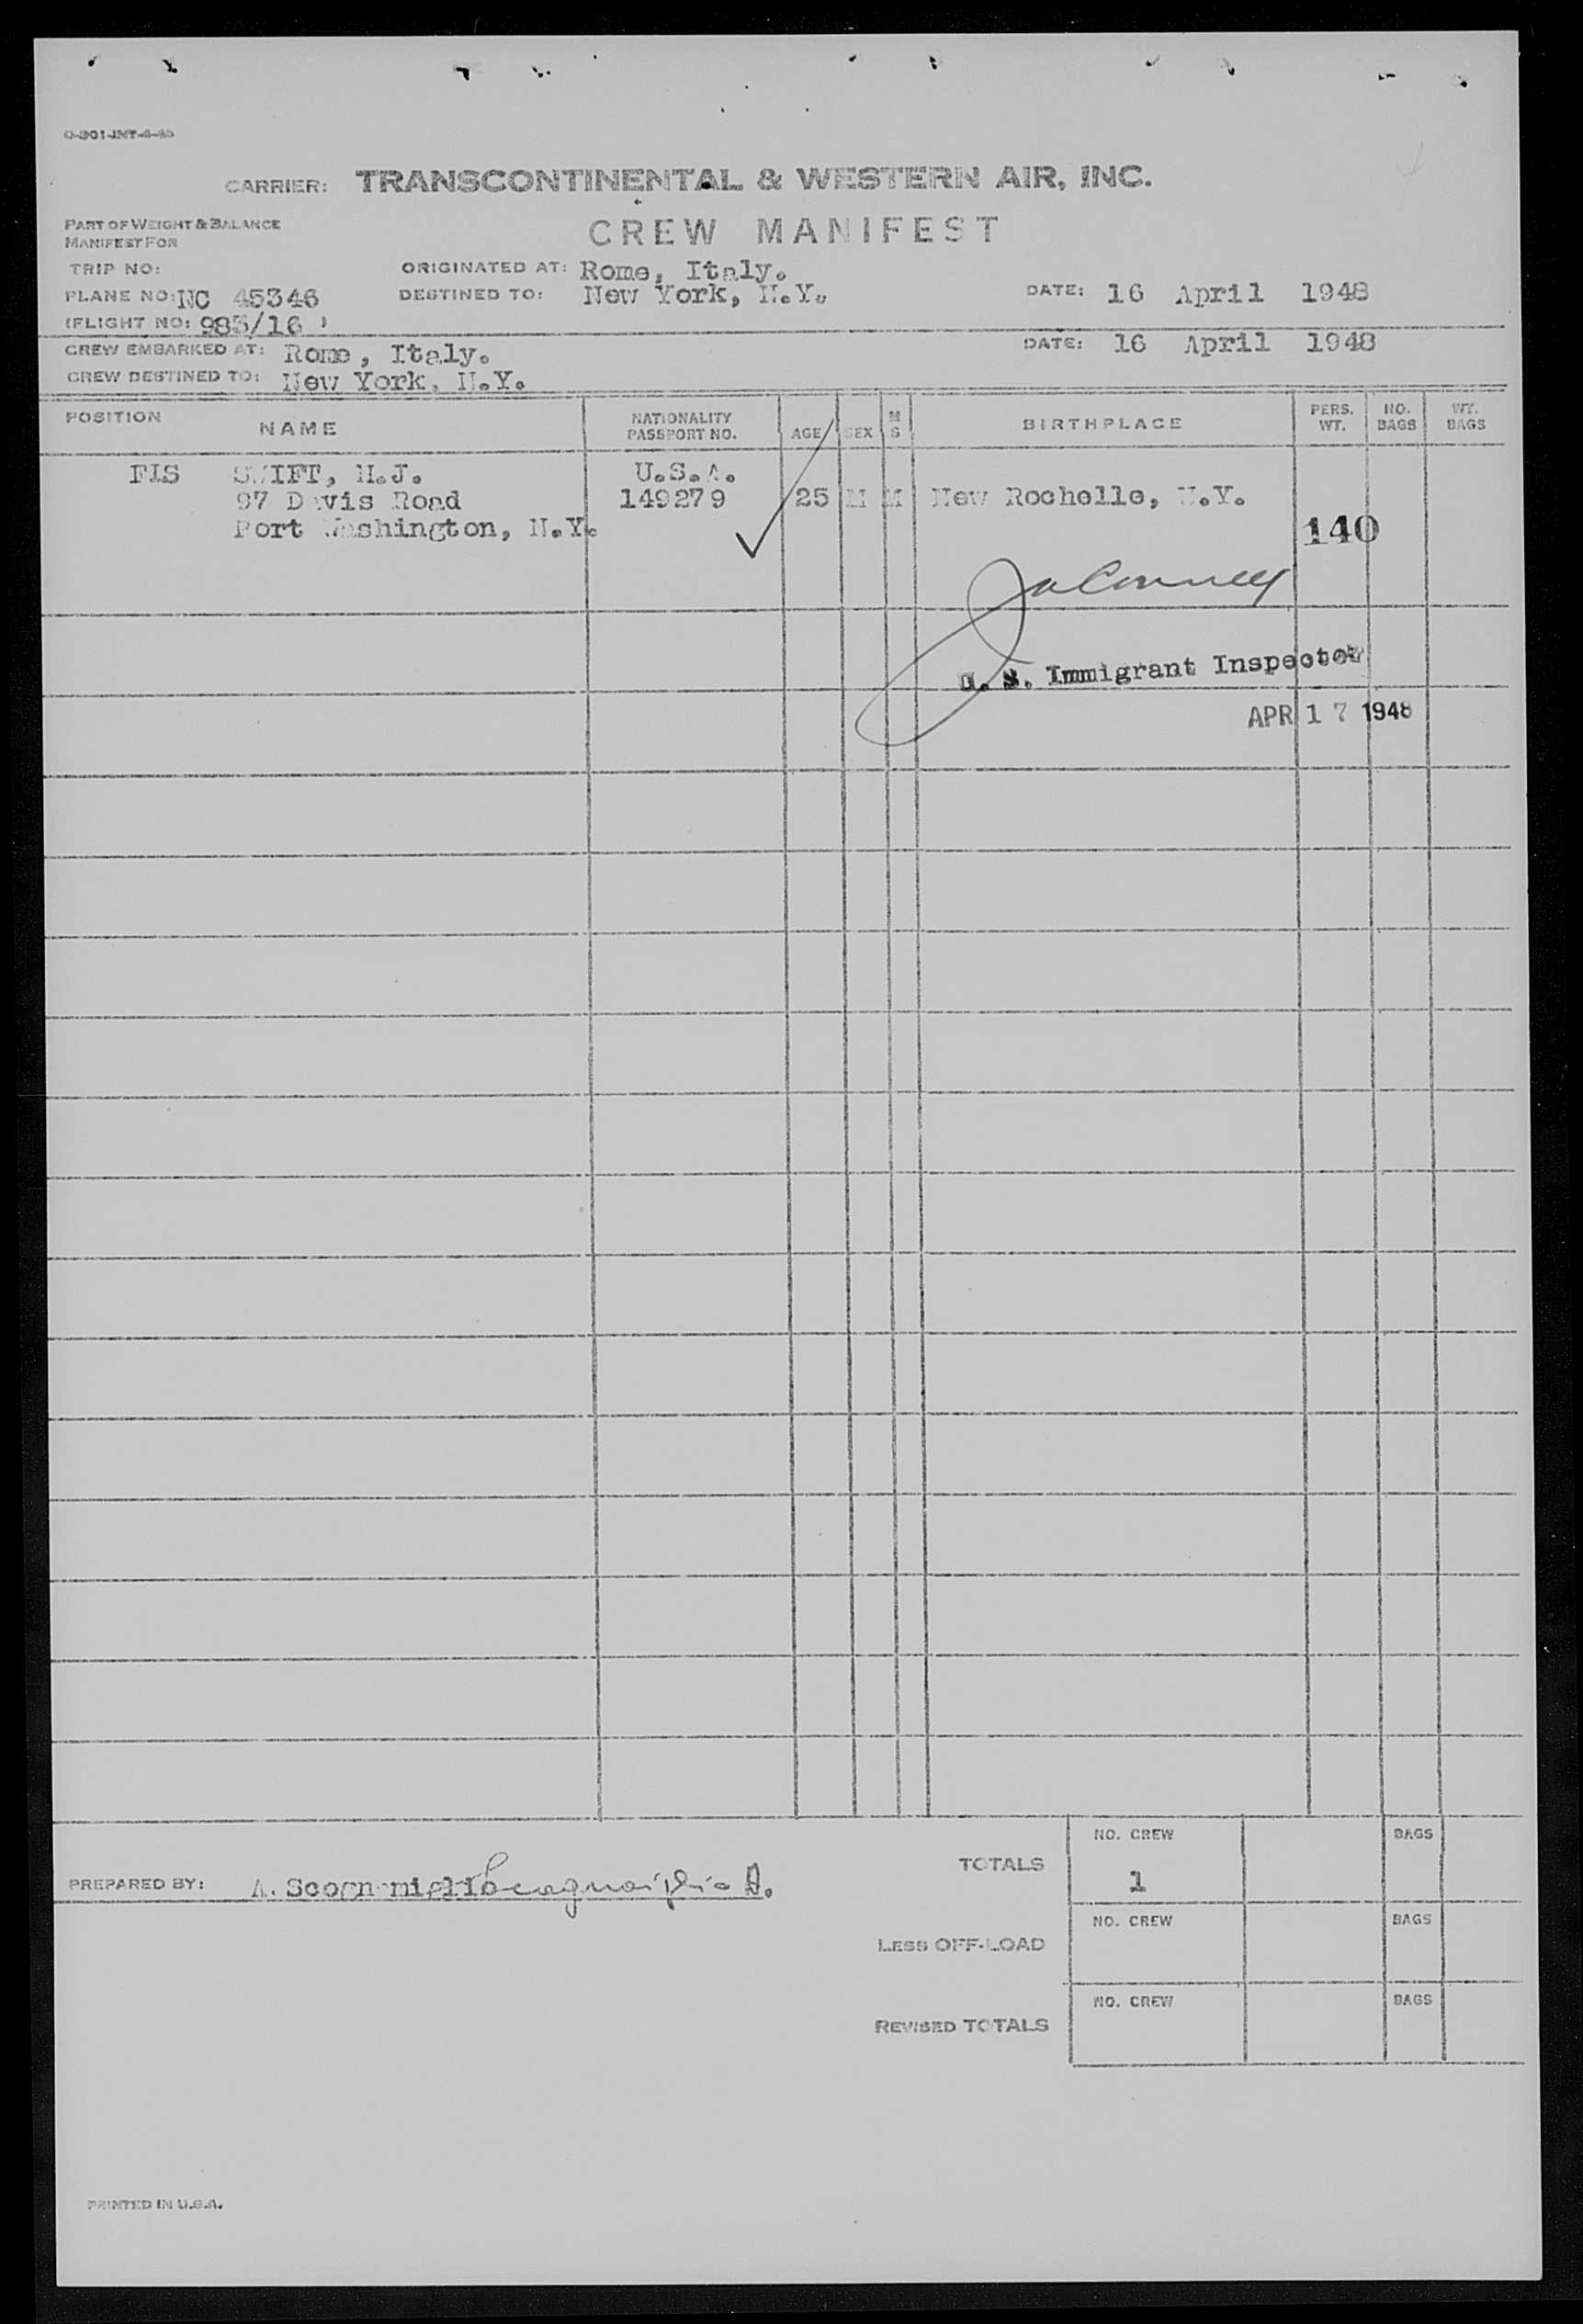 O-301-INT-4-45
CARRIER: TRANSCONTINENTAL & WESTERN AIR, INC.
PART OF WEIGHT & BALANCE
MANIFEST FOR
CREW MANIFEST
TRIP NO:
ORIGINATED AT: Rome, Italy.
PLANE NO: NC 45346
DESTINED TO: New York, N.Y.
DATE: 16 April 1948
(FLIGHT NO: 983/16 )
CREW EMBARKED AT: Rome, Italy.
DATE: 16 April 1948
CREW DESTINED TO: New York, N.Y.
POSITION NAME NATIONALITY PASSPORT NO. AGE SEX M S BIRTHPLACE PERS. WT. NO. BAGS WT. BAGS
FIS SWIFT, H.J. U.S.A.
97 Davis Road 149279 25 M M New Rochelle, N.Y.
Port Washington, N.Y.
140
U. S. Immigrant Inspector
APR 17 1948
NO. CREW BAGS
TOTALS
1
PREPARED BY: A.
NO. CREW BAGS
LESS OFF-LOAD
NO. CREW BAGS
REVISED TOTALS
PRINTED IN U.S.A.